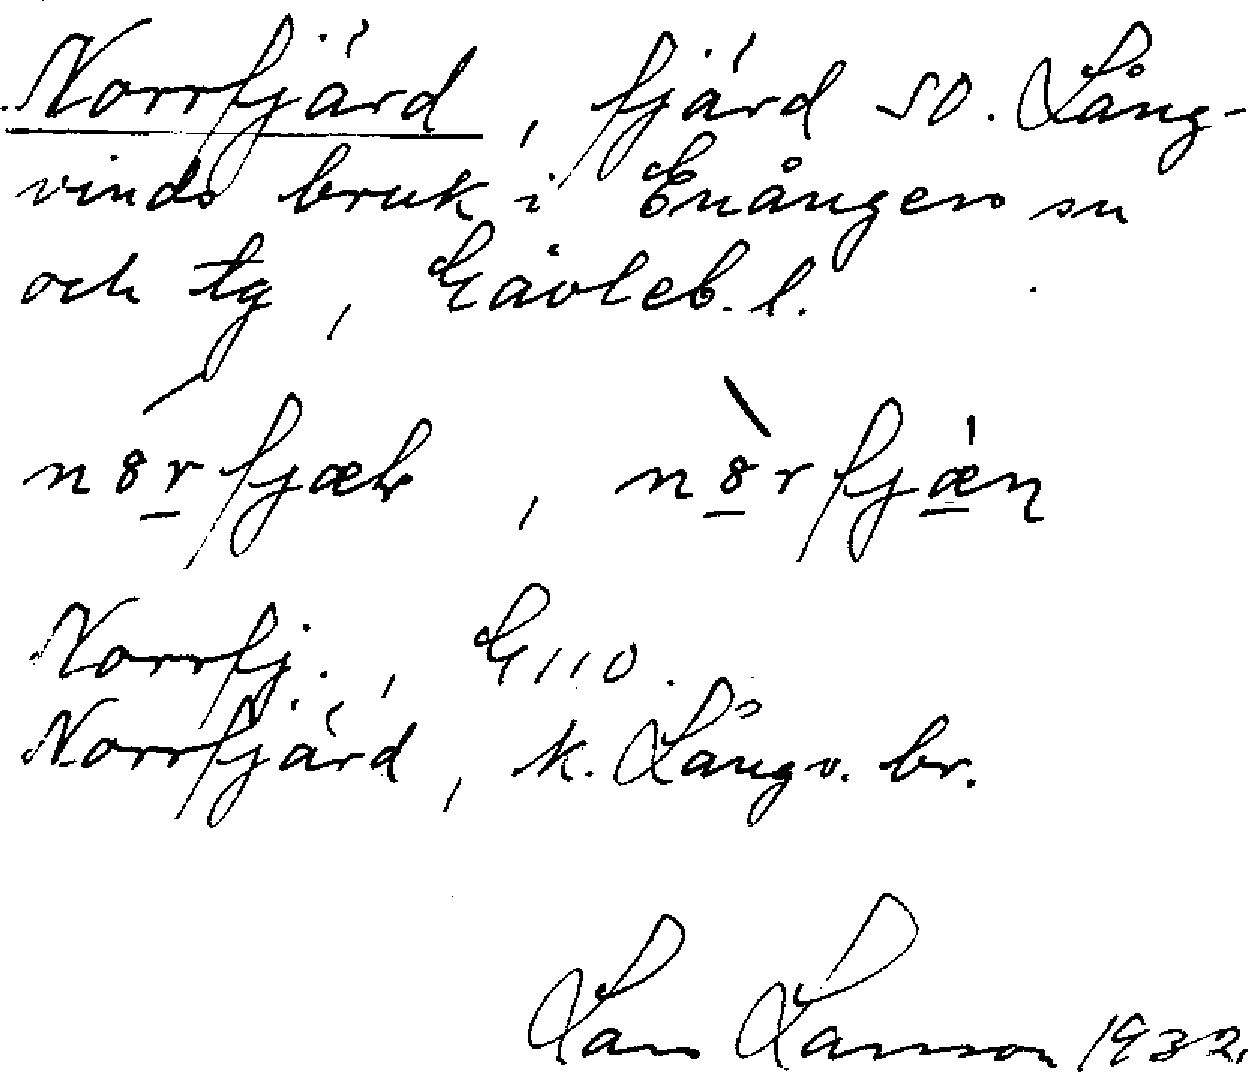 Norrfjärd, fjärd SO. Lång-
vinds bruk i Enångers sn
och tg, Gävleb. l.
Norrfj., G 110.
Norrfjärd, k. Långv. br.
Lars Larsson 1932.